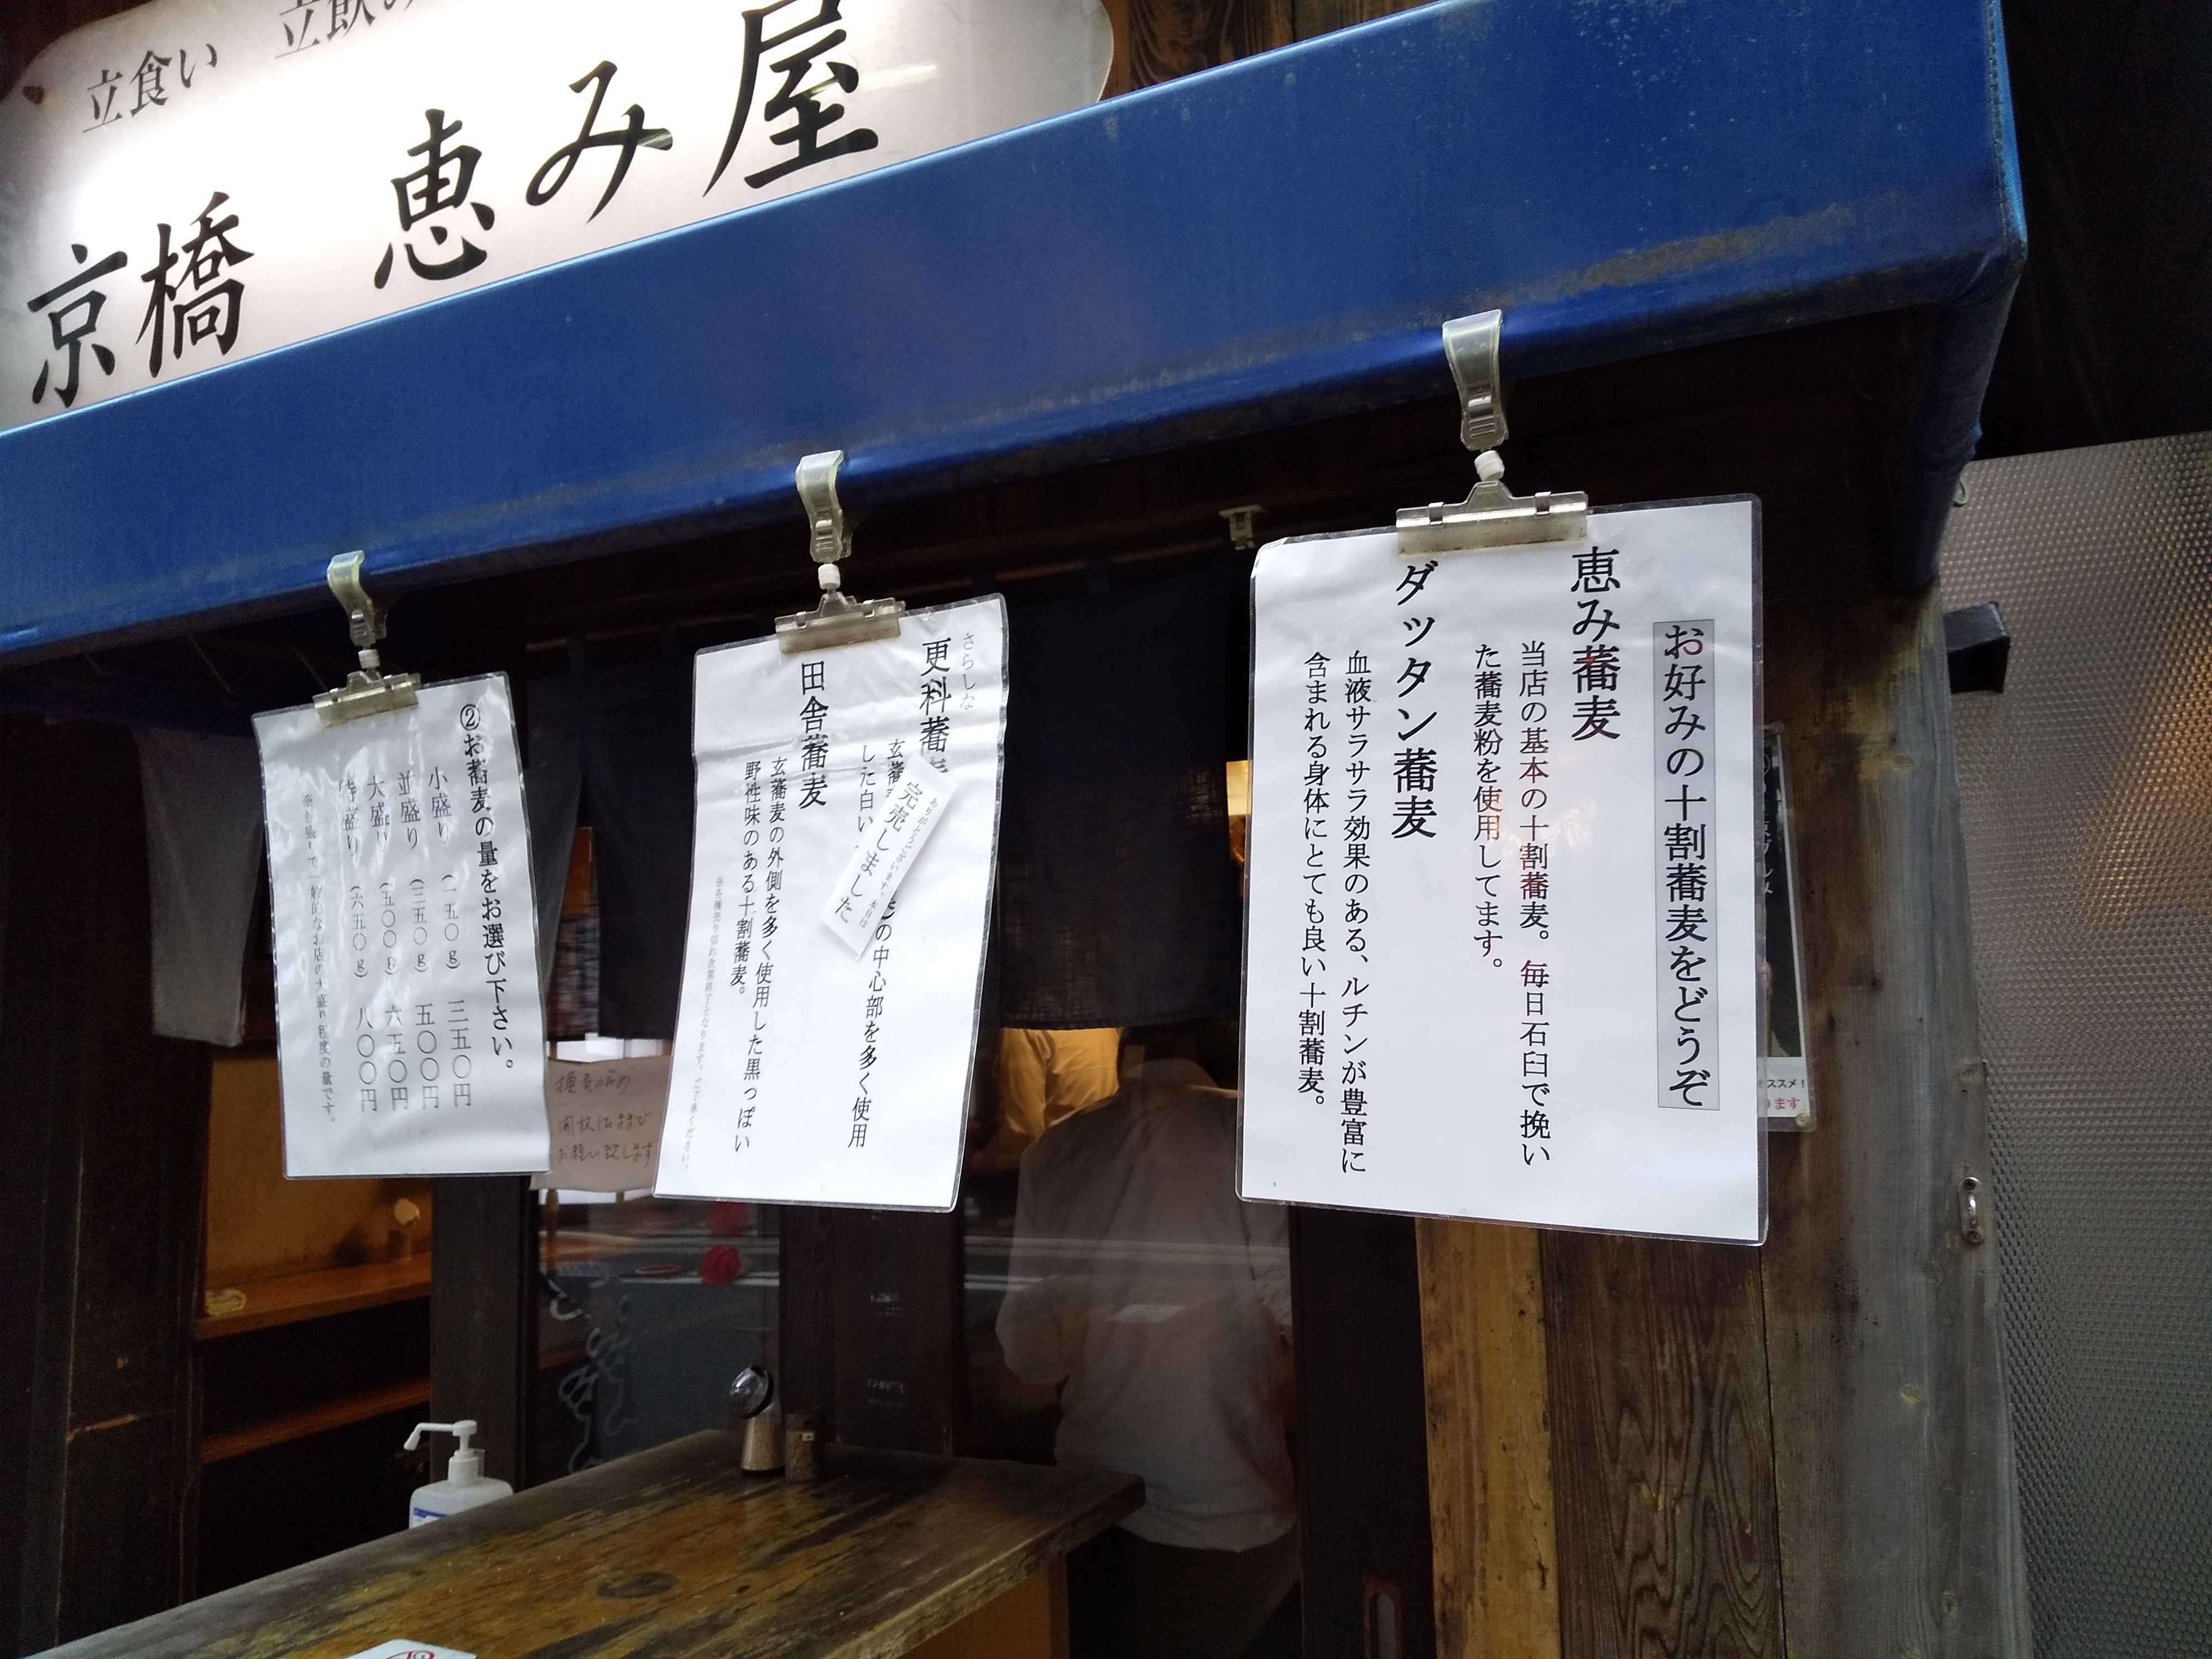 立食い 立飲み
京橋 恵み屋
お好みの十割蕎麦をどうぞ
恵み蕎麦
当店の基本の十割蕎麦。毎日石臼で挽い
た蕎麦粉を使用してます。
ダッタン蕎麦
血液サラサラ効果のある、ルチンが豊富に
含まれる身体にとても良い十割蕎麦。
さらしな
更科蕎麦
玄蕎
の中心部を多く使用
した白い
ありがとうございます。本日は
完売しました
田舎蕎麦
玄蕎麦の外側を多く使用した黒っぽい
野性味のある十割蕎麦。
※各種売り切れ次第終了となります。ご了承ください。
②お蕎麦の量をお選び下さい。
小盛り (一五〇g) 三五〇円
並盛り (三五〇g) 五〇〇円
大盛り (五〇〇g) 六五〇円
特盛り (六五〇g) 八〇〇円
※並盛りで一般的なお店の大盛り程度の量です。
換気の為
開放したままで
お願い致します
ススメ！
ります